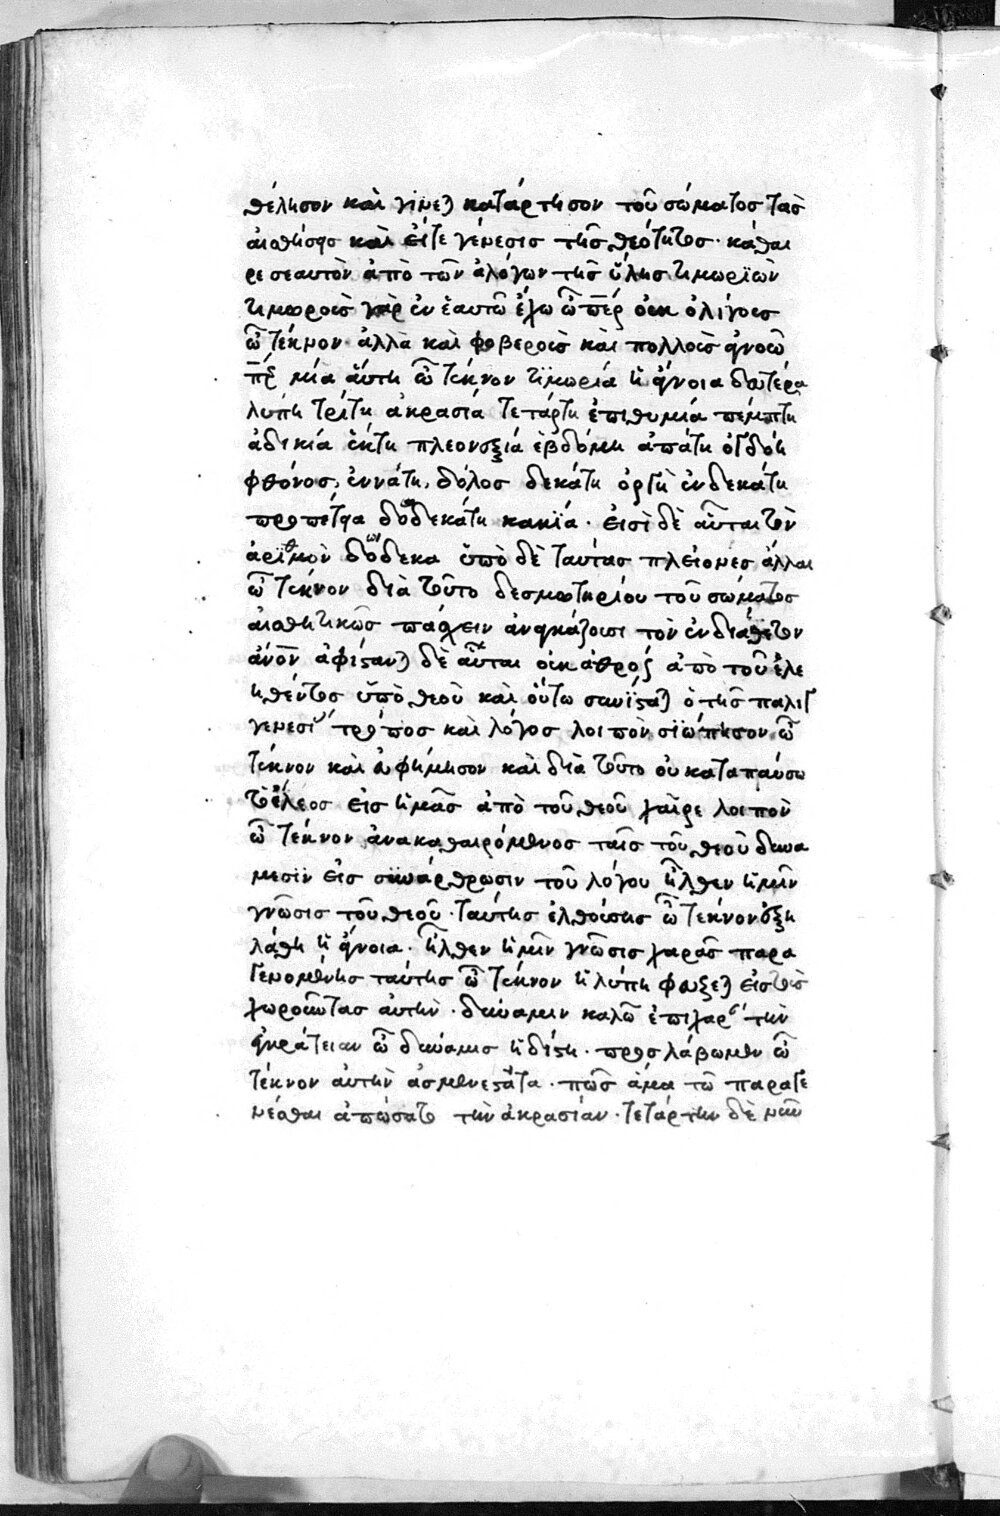 θέλησον καὶ γίνεται κατάρτησον τοῦ σώματος τὰς
αἰσθήσεις καὶ εἴτε γένεσις τῆς θεότητος · κάθαι
ρε σεαυτὸν ἀπὸ τῶν ἀλόγων τῆς ὕλης τιμωριῶν
τιμωροὺς γὰρ ἐν ἑαυτῶ ἔχω ὦ περ οὐκ ὀλίγους
ὦ τέκνον · ἀλλὰ καὶ φοβεροὺς καὶ πολλοὺς ἀγνοῶ
περ μία αὕτη ὦ τέκνον τιμωρία ἡ ἄγνοια δευτέρα
λύπη τρίτη ἀκρασία τετάρτη ἐπιθυμία πέμπτη
ἀδικία ἕκτη πλεονεξία ἑβδόμη ἀπάτη ὀγδόη
φθόνος, ἐννάτη, δόλος δεκάτη ὀργὴ ἑνδεκάτη
προπέτεια δωδεκάτη κακΐα · εἰσὶ δὲ αὗται τὸν
ἀριθμὸν δώδεκα ὑπὸ δὲ ταύτας πλείονες ἄλλαι
ὦ τέκνον διὰ τοῦτο δεσμωτηρίου τοῦ σώματος
αἰσθητικῶς πάσχειν ἀναγκάζουσι τὸν ἐνδιάθετον
ἄνον ἀφίσανται δὲ αὗται οὐκ ἀθρόως ἀπὸ τοῦ ἐλε
ηθέντος ὑπὸ θεοῦ καὶ οὕτω συνΐσαται ὁ τῆς παλιγ
γενεσίας τρόπος καὶ λόγος λοιπὸν σιώπησον ὦ
τέκνον καὶ εὐφήμησον καὶ διὰ τοῦτο οὐ καταπαύσω
τὸ ἔλεος εἰς ἡμᾶς ἀπὸ τοῦ θεοῦ χαῖρε λοιπὸν
ὦ τέκνον ἀνακαθαιρόμενος ταῖς τοῦ θεοῦ δυνά
μεσιν εἰς συνάρθρωσιν τοῦ λόγου ἦλθεν ἡμῖν
γνῶσις τοῦ θεοῦ · ταύτης ἐλθούσης ὦ τέκνον ἐξη
λάθη ἡ ἄγνοια · ἦλθεν ἡμῖν γνῶσις χαρᾶς παρα
γενομένης ταύτης ὦ τέκνον ἡ λύπη φεύξεται εἰς τοὺς
χωροῦντας αὐτὴν · δύναμιν καλῶ ἐπὶ χαρᾶ τὴν
ἐγκράτειαν ὦ δύναμις ἡδίστη · προσλάβωμεν ὦ
τέκνον αὐτὴν ἀσμενεστάτα · πῶς ἅμα τῶ παραγε
νέσθαι ἀπώσατο τὴν ἀκρασίαν · τετάρτην δὲ νῦν